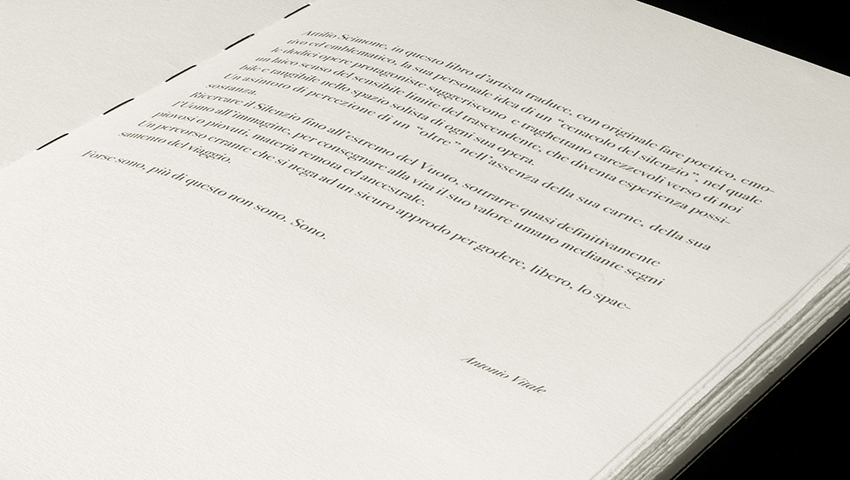 Attilio Scimone, in questo libro d'artista traduce, con originale fare poetico, emo-
tivo ed emblematico, la sua personale idea di un "cenacolo del silenzio", nel quale
le dodici opere protagoniste suggeriscono e traghettano carezzevoli verso di noi
un laico senso del sensibile limite del trascendente, che diventa esperienza possi-
bile e tangibile nello spazio solista di ogni sua opera.
Un asintoto di percezione di un "oltre" nell'assenza della sua carne, della sua
sostanza.
Ricercare il Silenzio fino all'estremo del Vuoto, sottrarre quasi definitivamente
l'Uomo all'immagine, per consegnare alla vita il suo valore umano mediante segni
piovosi o piovuti, materia remota ed ancestrale.
Un percorso errante che si nega ad un sicuro approdo per godere, libero, lo spae-
samento del viaggio.
Forse sono, più di questo non sono. Sono.
Antonio Vitale